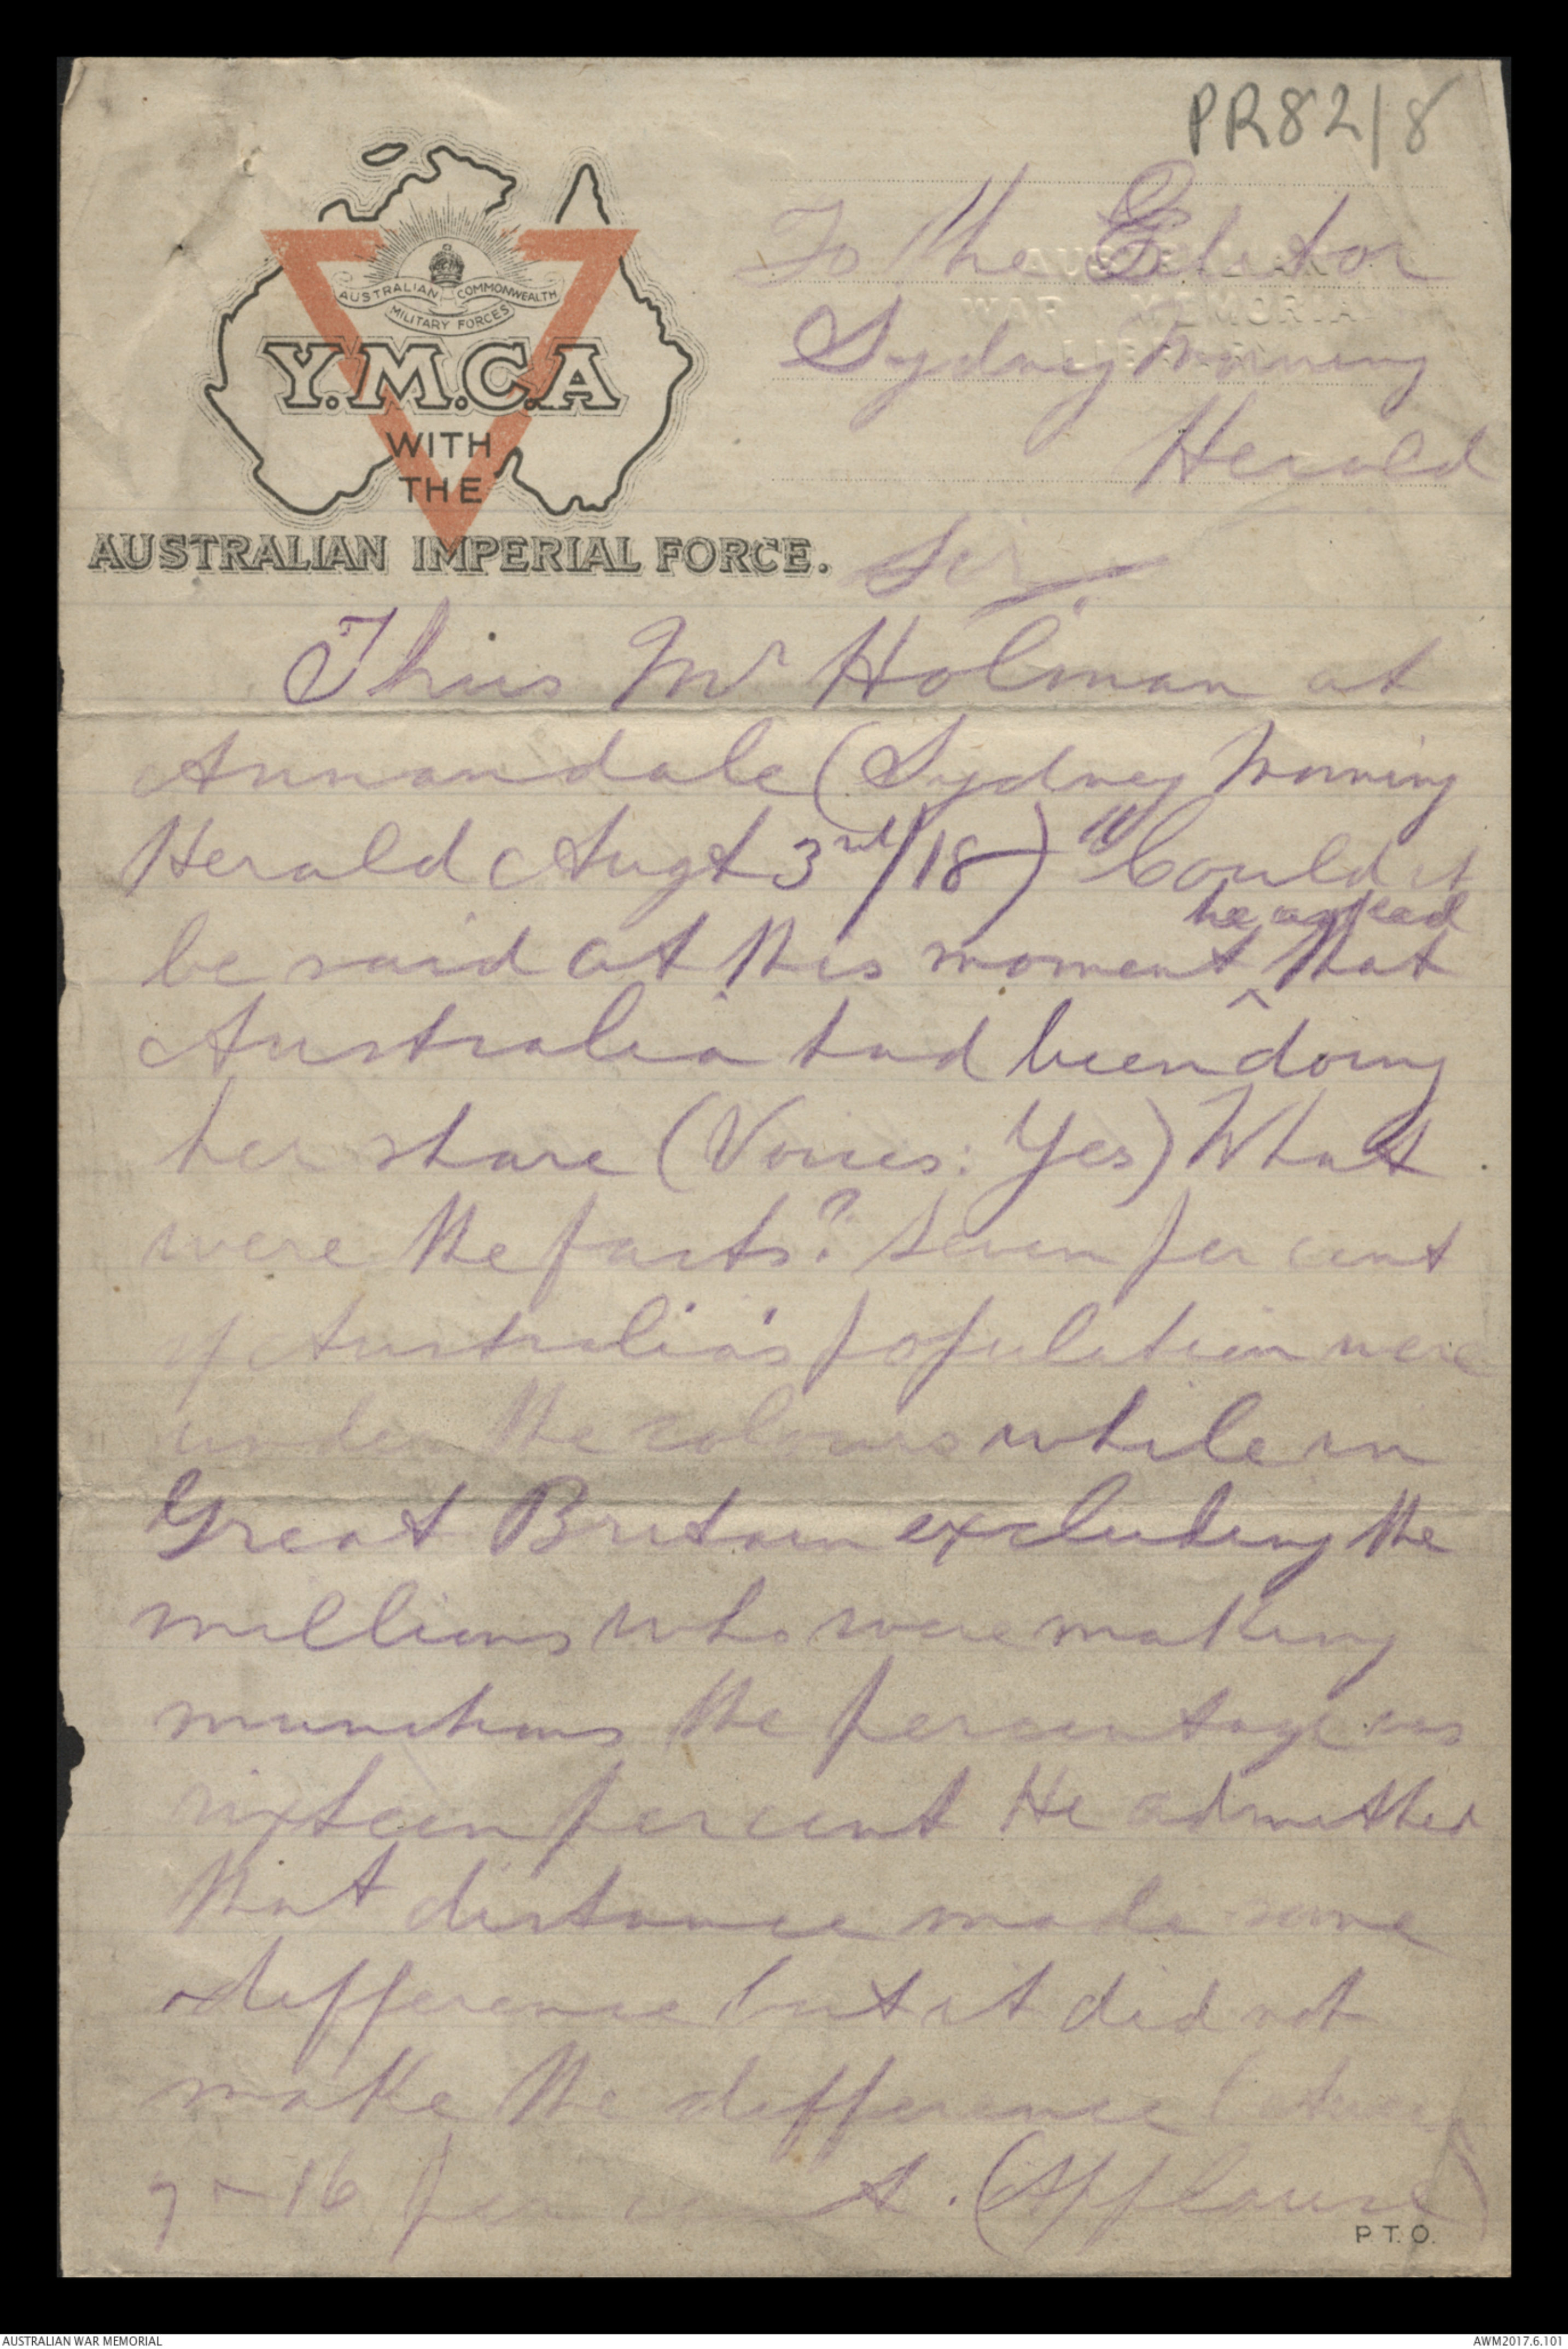 PR82/8
AUSTRALIAN COMMONWEALTH
MILITARY FORCES
Y.M.C.A
WITH
THE
AUSTRALIAN IMPERIAL FORCE.
AUSTRALIAN
WAR MEMORIAL
LIBRARY
To the Editor
Sydney Morning
Herald
Sir,
Thus Mr Holman at
Annandale (Sydney Morning
Herald Augt 3rd/18) "Could it
he asked
be said at this moment ^ that
Australia had been doing
her share (Voices: Yes) What
were the facts? Seven per cent
of Australia's population were
under the colours while in
Great Britain excluding the
millions who were making
munitions the percentage was
sixteen per cent He admitted
that distance made some
difference but it did not
make the difference between
7 & 16 per cent. (Applause)
P.T.O.
AUSTRALIAN WAR MEMORIAL
AWM2017.6.101